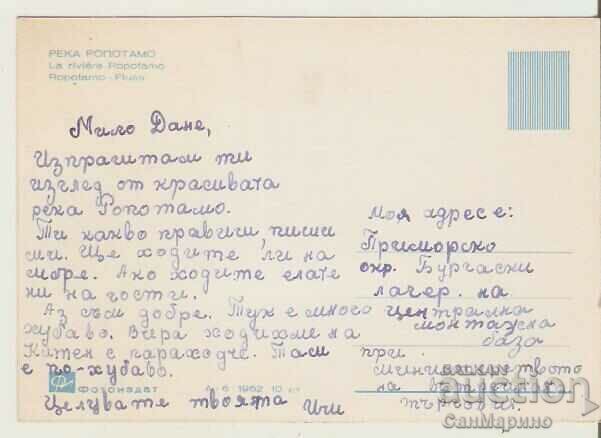 РЕКА РОПОТАМО
La rivière Ropotamo
Ropotamo-Fluss
Мило Дане,
Изпращам ти
изглед от красивата
река Ропотамо.
Ти какво правиш пиши
ми. Ще ходите ли на
море. Ако ходите елате
ни на гости.
Аз съм добре. Тук е много
хубаво. Вчера ходихме на
Китен с параходче. Там
е по-хубаво.
Целувате твоята
Моя адрес е:
Приморско
окр. Бургаски
лагер. на
централна
монтажна
база
при
министерството
на
търговия.
Фотоиздат
1962 10
auction
СанМарино